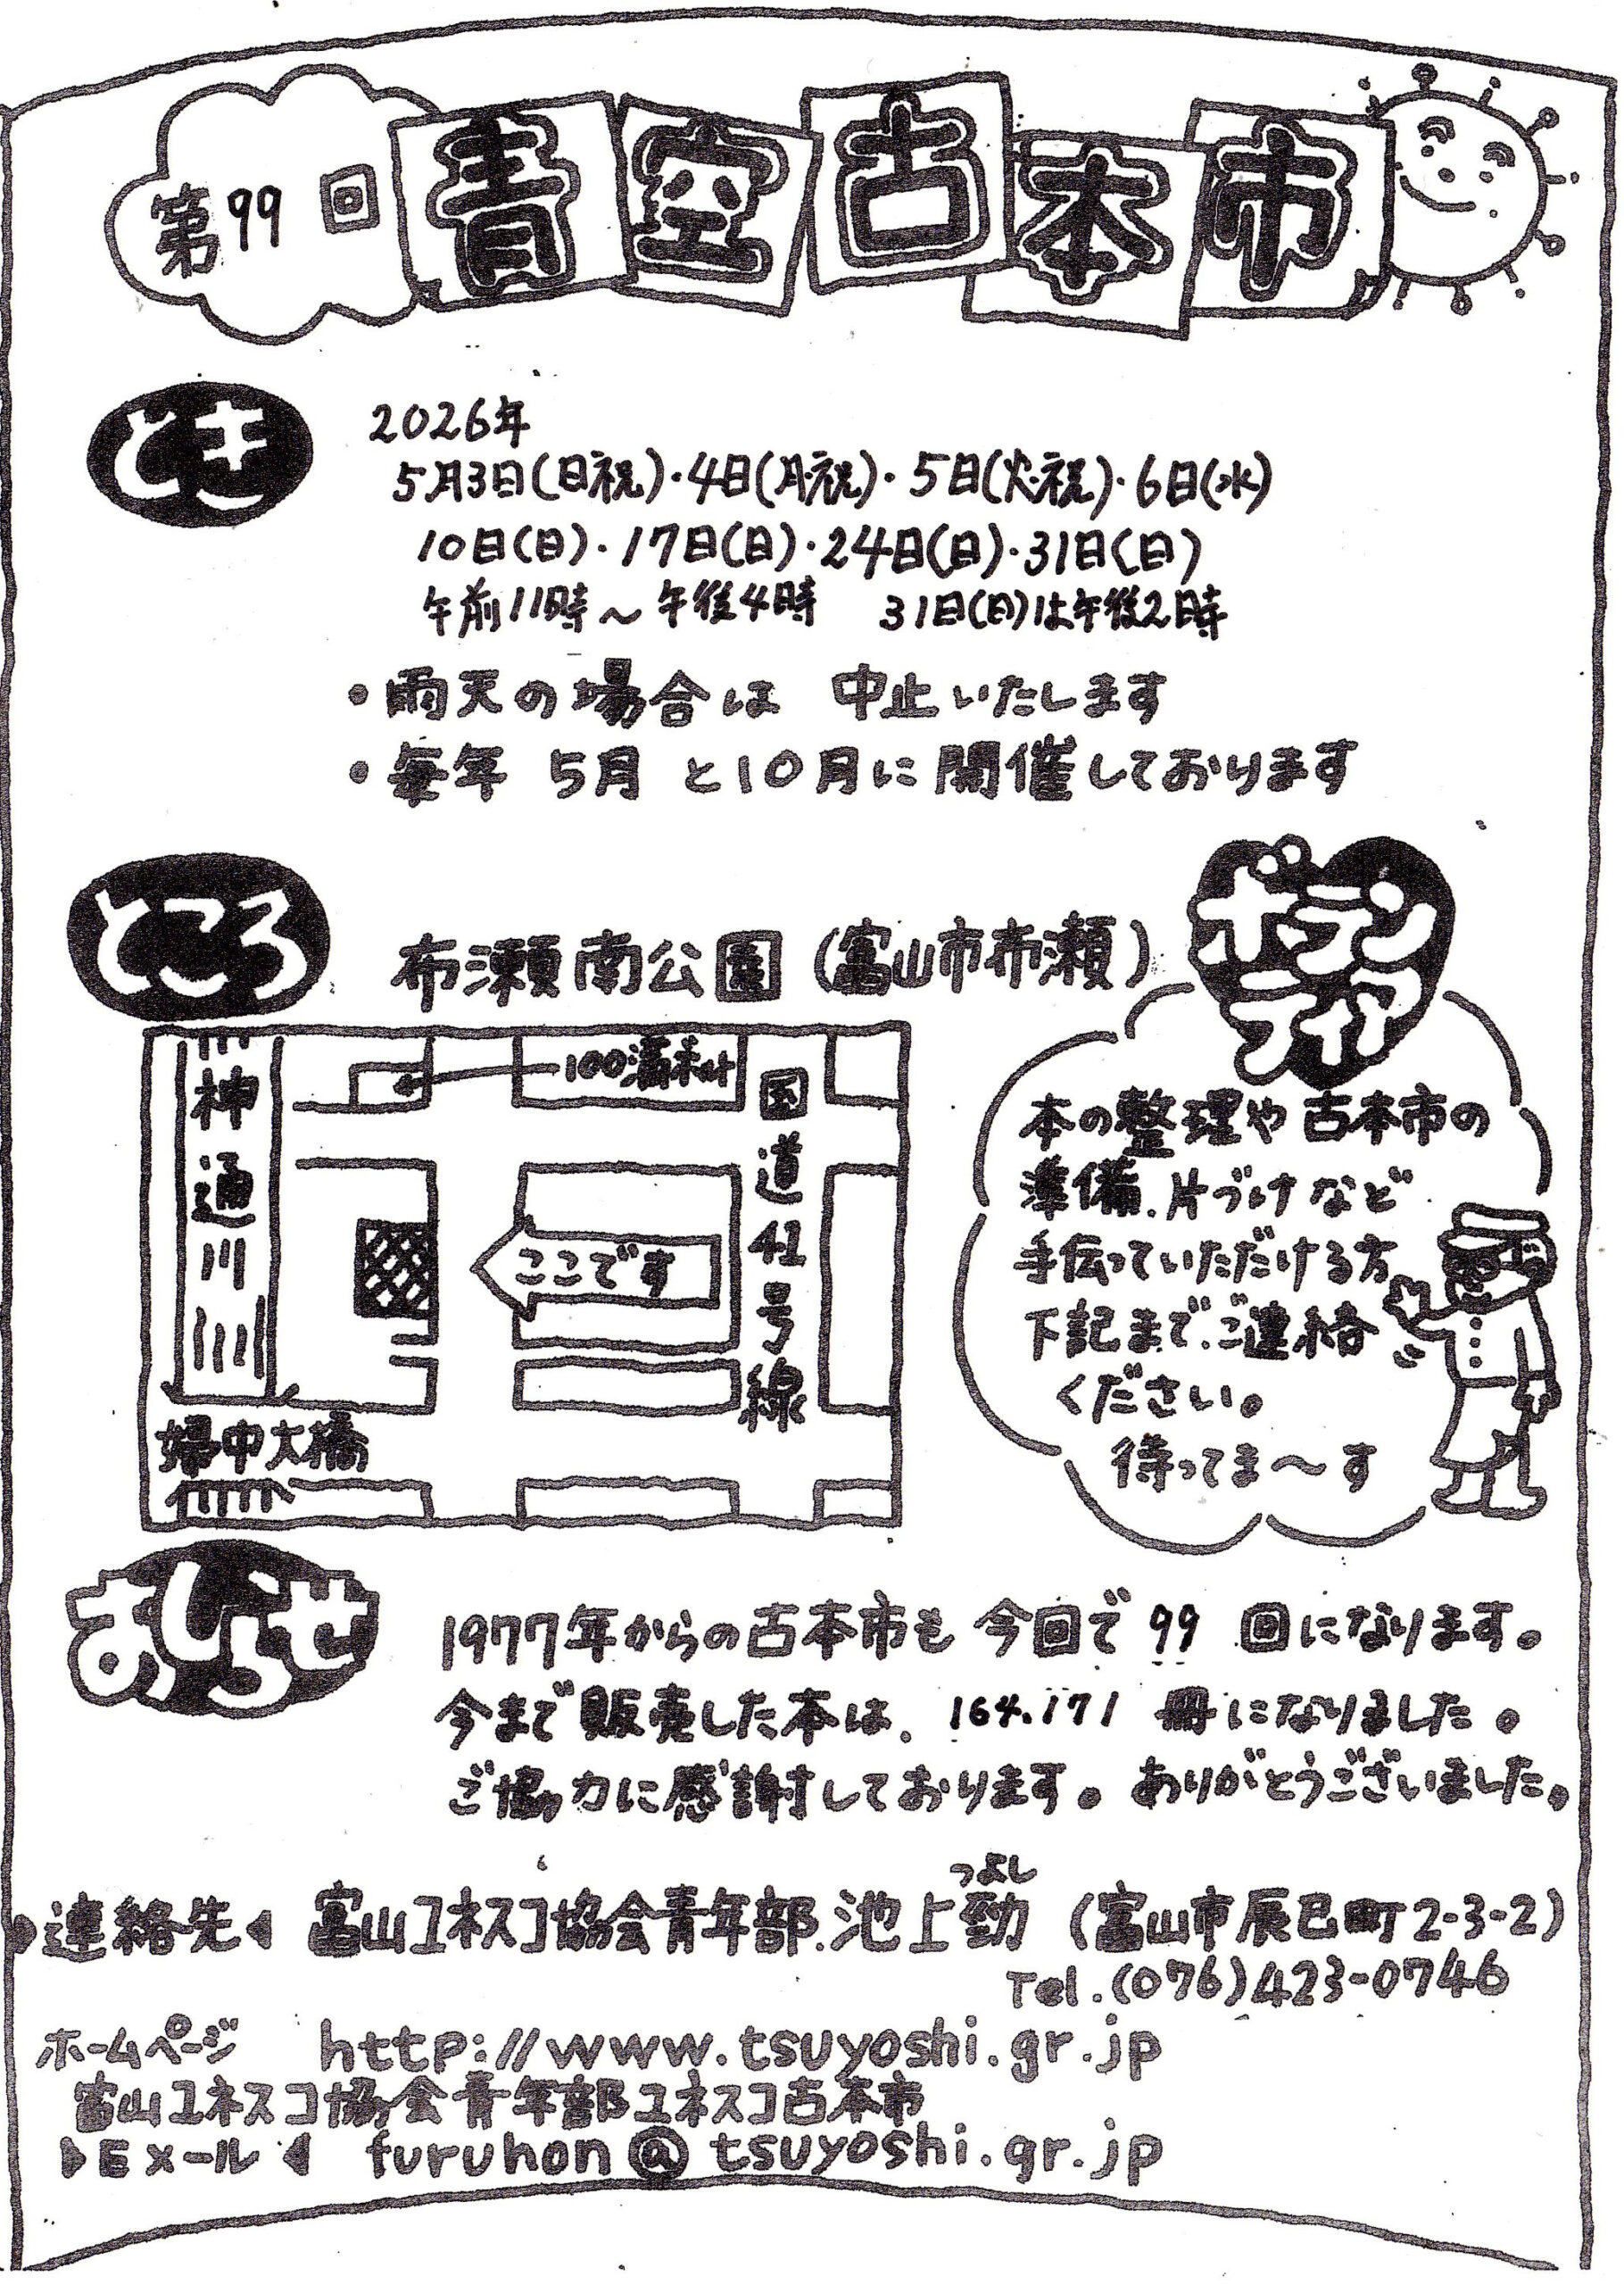 第99回 青空古本市
とき
2026年
5月3日(日祝)・4日(月祝)・5日(火祝)・6日(水)
10日(日)・17日(日)・24日(日)・31日(日)
午前11時～午後4時 31日(日)は午後2時
・雨天の場合は 中止いたします
・毎年 5月 と10月に開催しております
ところ
布瀬南公園(富山市布瀬)
神通川
100満ボルト
国道41号線
ここです
婦中大橋
ボランティア
本の整理や古本市の
準備、片づけなど
手伝っていただける方
下記まで、ご連絡
ください。
待ってま～す
おしらせ
1977年からの古本市も今回で 99 回になります。
今まで販売した本は、164,171 冊になりました。
ご協力に感謝しております。ありがとうございました。
つよし
連絡先 富山ユネスコ協会青年部、池上勁 (富山市辰巳町2-3-2)
Tel.(076)423-0746
ホームページ http://www.tsuyoshi.gr.jp
富山ユネスコ協会青年部ユネスコ古本市
Eメール furuhon@tsuyoshi.gr.jp